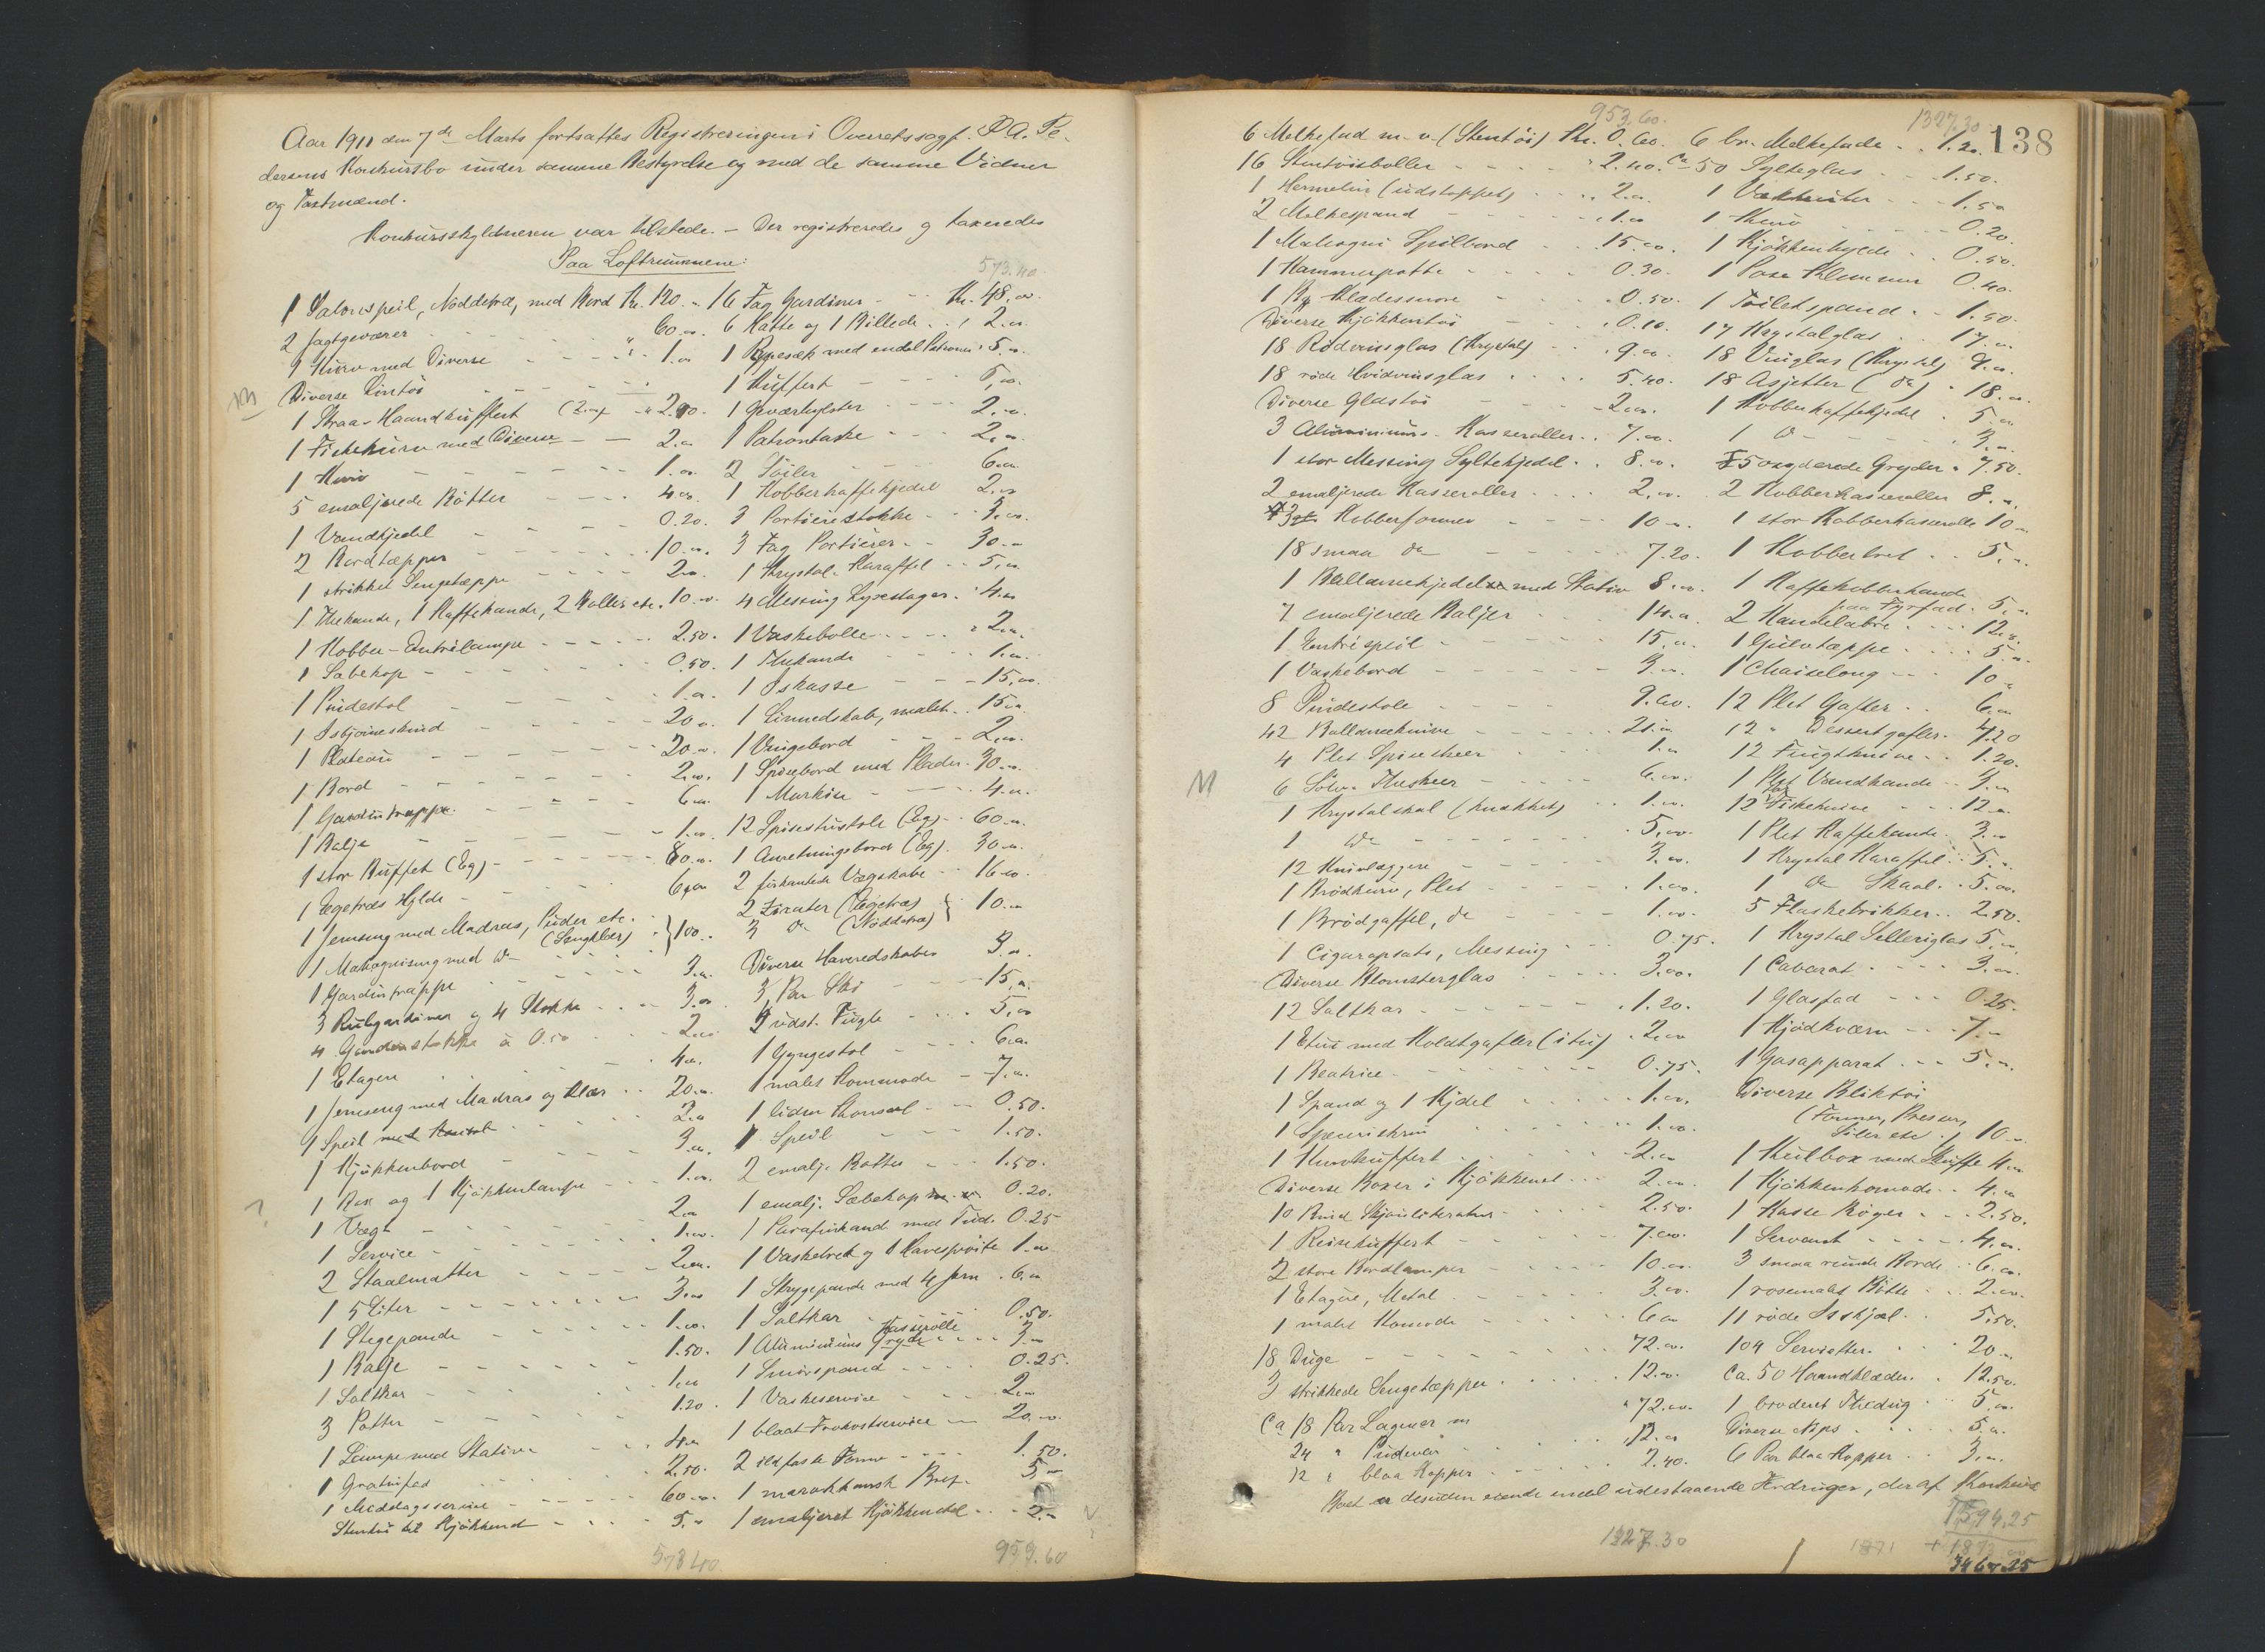 Aar 1911 den 7de Marts fortsattes Registreringen i Overretssagf. P. A. Pe-
dersens Konkursbo under samme Bestyrelse og med de samme Vidner
og Taxtmænd.
Konkursskyldneren var tilstede. - Der registreredes og taxeredes
Paa Loftrummene:
573.40
1 Salonspeil, Nøddetræ, med Bord Kr. 120.-
2 Jagtgeværer 60.00
1 Kurv med Diverse 1.00
Diverse Lintøi
1 Straa-Haandkuffert
1 Fiskekurv med Diverse 2.00
1 Kurv 1.00
5 emaljerede Bøtter 4.00
1 Vandkjedel 0.20.
2 Bordtæpper 10.00
1 strikket Sengetæppe 2.00
1 Thekande, 1 Kaffekande, 2 Boller etc. 10.00
1 Kobber-Entrélampe 2.50.
1 Sæbekop 0.50.
1 Pindestol 1.00
1 Isbjørneskind 20.00
1 Plateau 20.00
1 Bord 2.00
1 Gardintrappe 6.00
1 Balje 1.00
1 stor Buffet (Eg) 80.00
1 Egetræs Hylde
1 Jernseng med Madras, Puder etc.
(Sengklær) } 100.
1 Mahogniseng med Do
1 Gardintrappe 3.00
3 Rulgardiner og 4 Stokke 3.00
4 Gardinstokke à 0.50 2.00
1 Etagere 4.00
1 Jernseng med Madras og klær 20.00
1 Speil med Konsol 2.00
1 Kjøkkenbord 3.00
1 Box og 1 Kjøkkenlampe 1.00
1 Vægt 2.00
1 Service 1.00
2 Staalmatter 2.00
1 5 Liter 3.00
1 Stegepande 1.00
1 Balje 1.50.
1 Saltkar 1.00
3 Potter 1.20.
1 Lampe med Stativ
1 Gratinfad 2.50.
1 Middagsservice 60.00
Stentøi til Kjøkkenet 5.00
573 40
16 Fag Gardiner Kr. 48.00
6 Hatte og 1 Billede 2.00
1 Rypesæk med endel Patroner 5.00
1 Kuffert 5.00
1 Geværhylster 2.00
1 Patrontaske 2.00
2 Søiler 6.00
1 Kobberkaffekjedel 2.00
3 Portierestokke 3.00
3 Fag Portierer 30.00
1 Krystal-Karaffel 5.00
4 Messing Lysestager 4.00
1 Vaskebolle 2.00
1 Thekande 1.00
1 Iskasse 15.00
1 Linnedskab, malet 15.00
1 Vingebord 2.00
1 Spisebord med Plader 30.00
1 Markise 4.00
12 Spisestustole (Eg) 60.00
1 Anretningsbord (Eg) 30.00
2 firkantede Vægskabe 16.00
2 Zirater (Egetræ)
3 Do (Nøddetræ) } 10.00
Diverse Haveredskaber 3.00
3 Par Ski 15.00
udst. Fugle 5.00
1 Gyngestol 6.00
1 malet Kommode 7.00
1 liden Konsol 0.50.
1 Speil 1.50.
2 emalj. Bøtter 1.50.
1 emalj. Sæbekop m. v. 0.20.
1 Parafinkande med Tud. 0.25
1 Vaskebret og 1 Havesprøite 1.00
1 Strygepande med 4 Jern 6.00
1 Saltkar 0.50.
1 Aluminiums Gryde Kasserolle 3.00
1 Smørspand 0.25.
1 Vaskeservice 2.00
1 blaat Frokostservice 20.00
2 ildfaste Forme 1.50.
1 marokkansk
1 emaljeret Kjøkkenstel 2.00
953.60
138
953.60.
1327.30
6 Melkefad m. v. (Stentøi) Kr. 0.60.
16 Stentøisboller 2.40.
1 Hermelin (udstoppet) 2.00
2 Melkespand 1.00
1 Mahogni Spilbord 15.00.
1 Kammerpotte 0.30.
1 Klædessnore 0.50.
Diverse Kjøkkentøi 0.10.
18 Rødvinsglas (Krystal) 9.00.
18 røde Hvidvinsglas 5.40.
Diverse Glastøi 2.00.
3 Aluminiums-Kasseroller 7.00.
1 stor Messing Syltekjedel 8.00.
2 emaljerede Kasseroller 2.00.
Kobberformer 10.00
18 smaa do 7.20.
1 Ballancekjedel med Stativ 8.00
7 emaljerede Baljer 14.00
1 Entréspeil 15.00
1 Vaskebord 3.00
8 Pindestole
42 Ballanceknive 21.00
4 Plet Spiseskeer 1.00
6 Sølv-Theskeer 6.00.
1 Krystalskaal (knækket) 1.00.
1 do 5.00.
12 Knivlæggere 3.00.
1 Brødkurv, Plet 1.00.
1 Brødgaffel, do 1.00.
1 Cigaropsats, Messing 0.75.
Diverse Blomsterglas 3.00.
12 Saltkar 1.20.
1 Etui med Koldtgafler (itu) 2.00
1 Beatrice 0.75.
1 Spand og 1 Kjedel 1.00.
1 1.00.
1 Kurvkuffert 2.00
Diverse Boxer i Kjøkkenet 2.00.
10 Bind Skjønliteratur 2.50.
1 Reisekuffert 7.00.
2 store Bordlamper 10.00.
1 Etagere, Metal 3.00.
1 malet Komode 6.00
18 Duge 72.00.
3 strikkede Sengetæpper 12.00.
Ca 18 Par Lagener 72.00.
24 " Pudevar 12.00
12 " blaa Kopper 2.40.
6 br. Melkefade 1.20.
Ca 50 Sylteglas 1.50.
1 1.50
1 Kurv 0.20.
1 Kjøkkenhylde 0.50.
1 Pose Klemmer 0.40.
1 Toiletspand 1.50.
17 Krystalglas 17.00
18 Vinglas (Krystal) 9.00
18 Asjetter ( do ) 18.00
1 Kobberkaffekjedel 5.00
1 Do 3.00
5 oxyderede Gryder 7.50.
2 Kobberkasseroller 8.00
1 stor Kobberkasserolle 10.00
1 Kobberbret 5.00
1 Kaffekobberkande
paa Fyrfad 5.00
2 Kandelabre 12.00
1 Gulvtæppe 5.00
1 Chaiselong 10.00
12 Plet Gafler 6.00
12 " Dessertgafler
12 Frugtknive 1.20.
1 Plet Vandkande 3.00
12 Fiskeknive 12.00
1 Plet Kaffekande 3.00
1 Krystal Karaffel 5.00
1 do Skaal 5.00.
5 Flaskebrikker 2.50.
1 Krystal Selleriglas 5.00
1 Cabarat 3.00
1 Glasfad 0.25.
1 Kjødkværn 7.00
1 Gasapparat 5.00
Diverse Bliktøi
(Former, Presser,
Siler etc.) 10.00
1 Kulbox med Skuffe 4.00
1 Kjøkkenkomode 4.00
1 Kasse Bøger 2.50.
1 Servant 4.00
3 smaa runde Borde 6.00
1 rosemalet Bøtte 2.00
11 røde Isskjæl 5.50.
104 Servietter 20.00
Ca. 50 Haandklæder 12.50.
1 broderet Thedug 5.00
Diverse Nips 5.00
6 Par blaa Kopper 3.00
Boet er desuden eiende endel udestaaende Fordringer, deraf
1327.30
1871
1594.25
+ 1873.00
3467.25